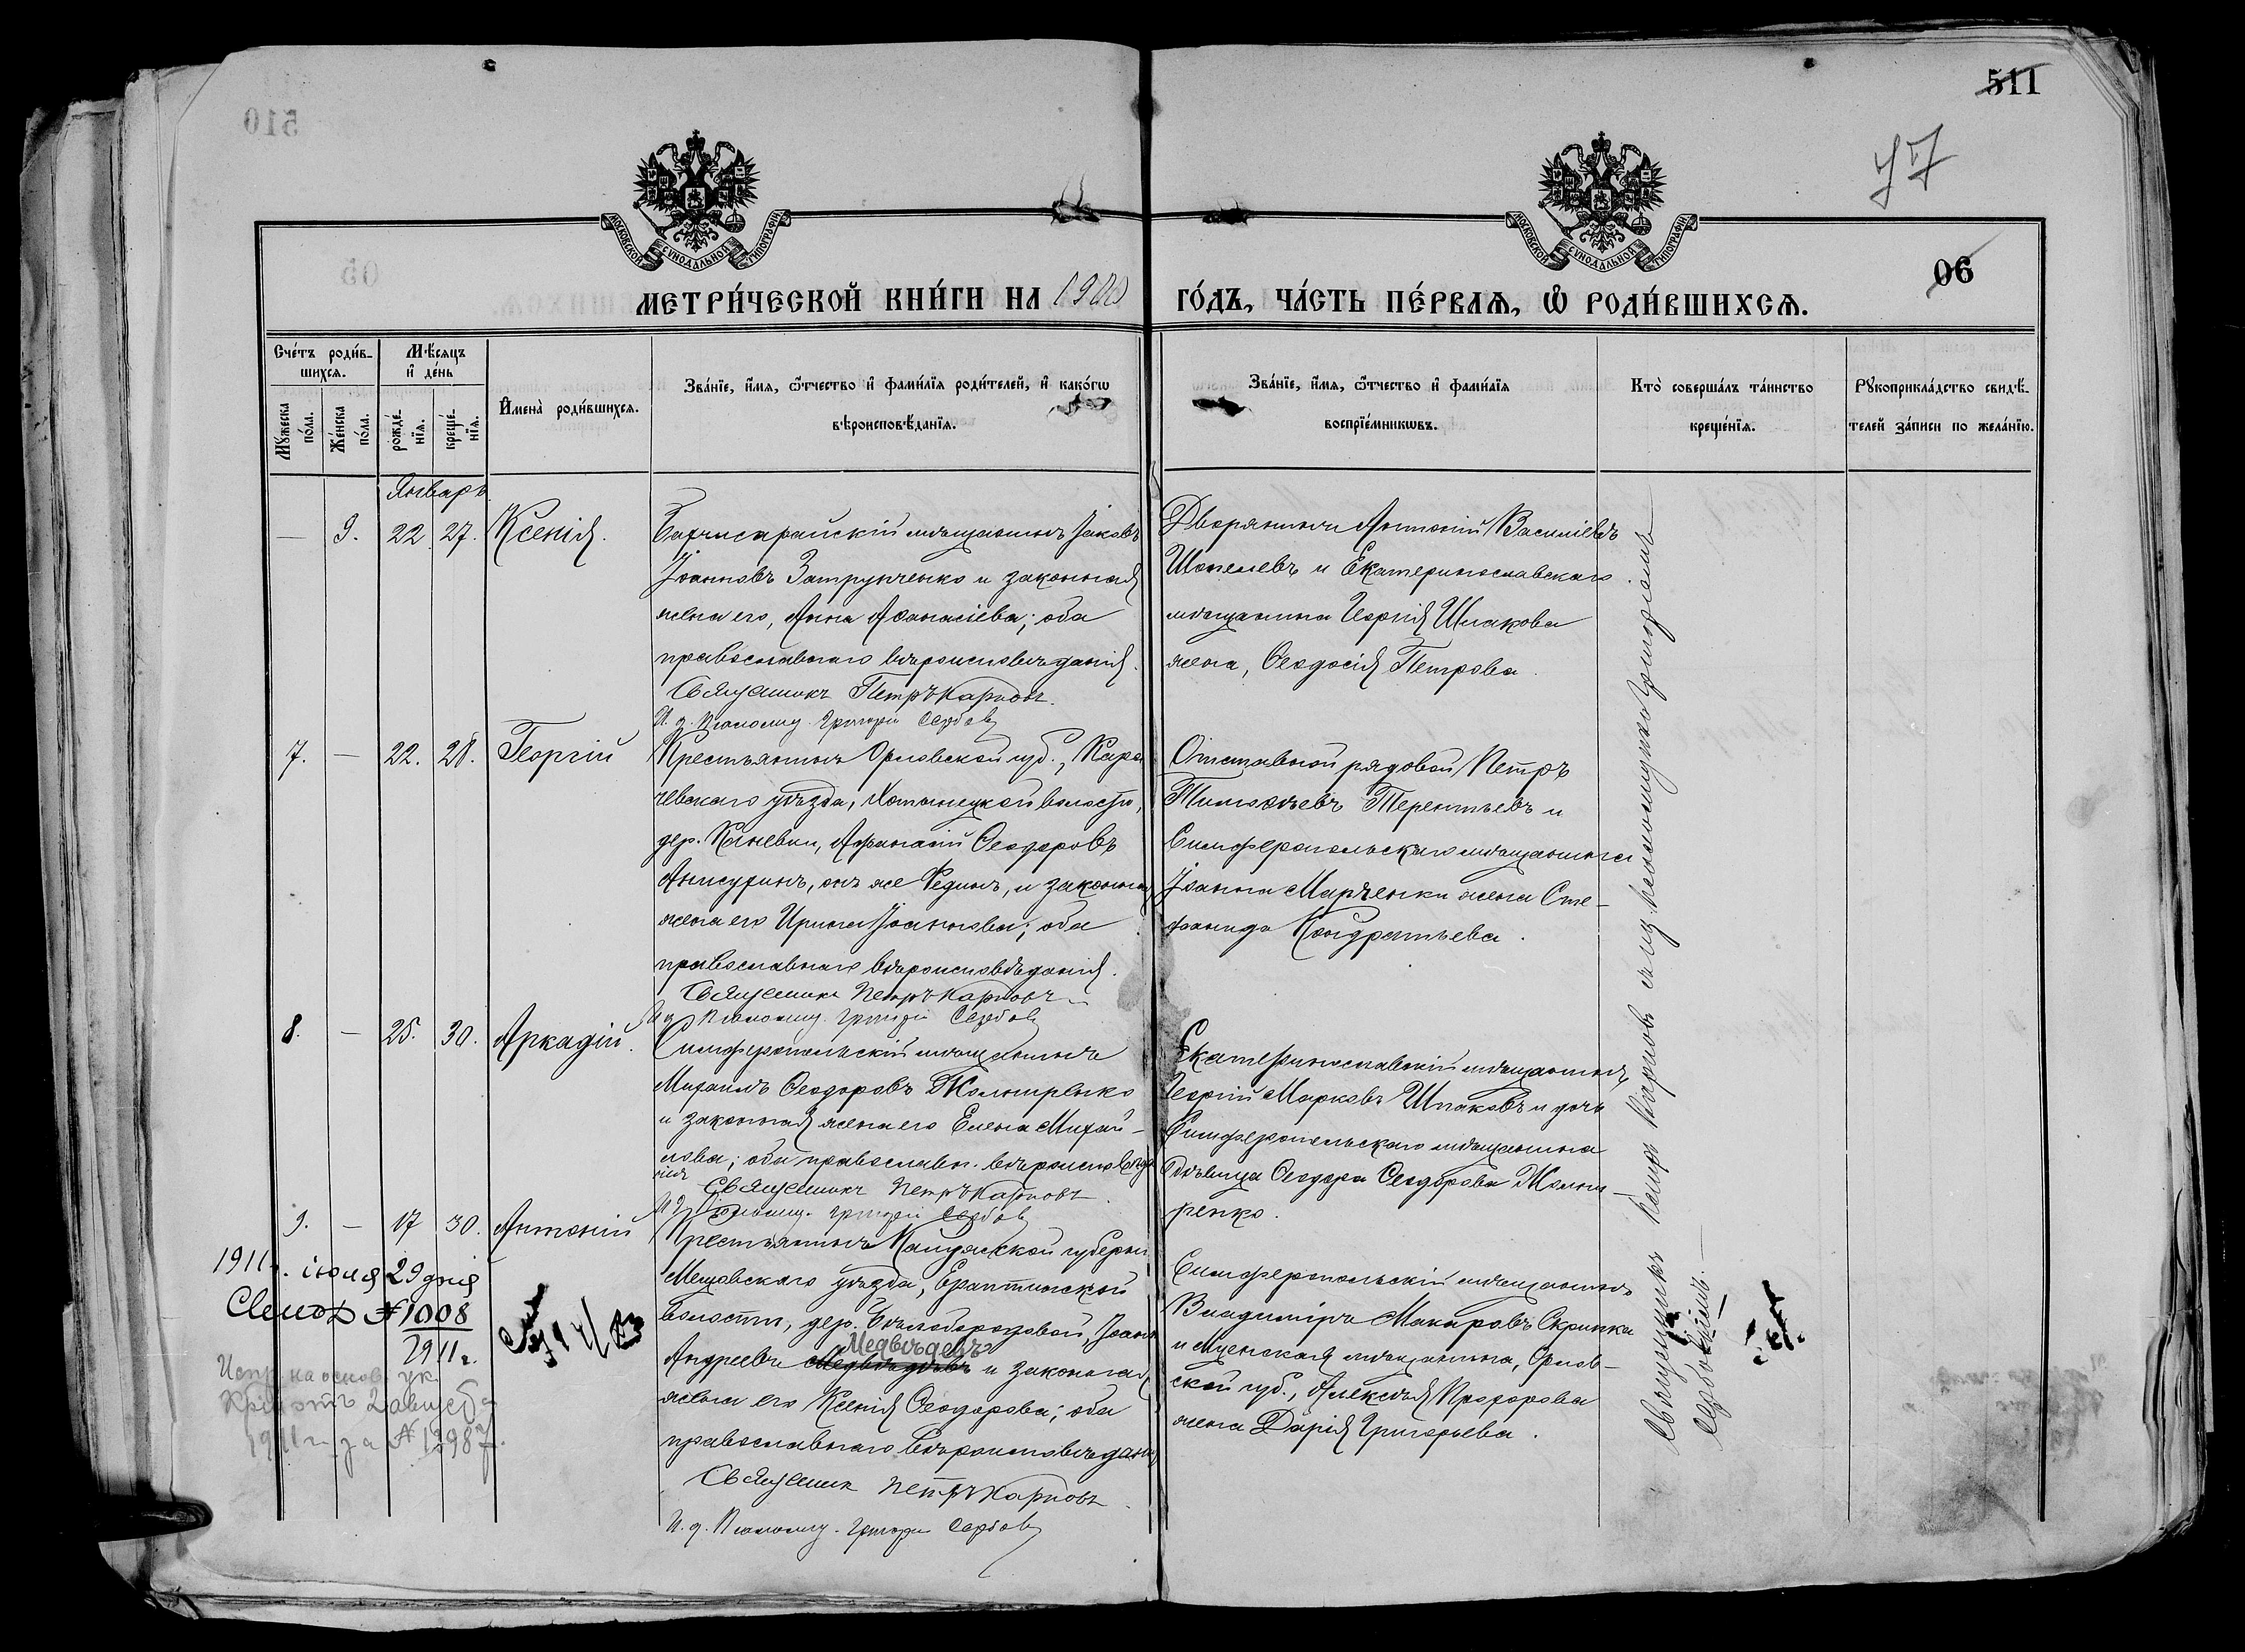 511
47
06
МЕТРИ́ЧЕСКОЙ КНИ́ГИ НА 1900 ГО́ДЪ, ЧА́СТЬ ПЕ́РВАѦ, Ѿ РОДИ́ВШИХСѦ.
Сче́тъ роди́в-
шихсѧ.
Мꙋжеска по́ла.
Же́нска по́ла.
Мѣ́сяцъ
и҆ де́нь
рожде́-
нїѧ.
креще́-
нїѧ.
И҆мена̀ роди́вшихсѧ.
Зва́нїе, и҆́мѧ, ѻ҆́тчество и҆ фами́лїѧ роди́телей, и҆ како́гѡ
вѣроисповѣ́данїѧ.
Зва́нїе, и҆́мѧ, ѻ҆́тчество и҆ фами́лїѧ
воспрїе́мникѡвъ.
Кто̀ соверша́лъ та́инство
креще́нїѧ.
Рꙋкоприкла́дство свидѣ́-
телей за́писи по жела́нїю.
Январь
— 9. 22. 27. Ксенія.
Бахчисарайскій мѣщанинъ Іаковъ
Іоанновъ Затрунченко и законная
жена его, Анна Аѳанасіева; оба
православнаго вѣроисповѣданія.
Священникъ Петръ Карповъ.
И. д. псаломщ. Григорій Сербовъ
Дворянинъ Антоній Василіевъ
Шепелевъ и Екатеринославскаго
мѣщанина Георгія Шпакова
жена, Ѳеодосія Петрова.
7. — 22. 28. Георгій
Крестьянинъ Орловской губ., Кара-
чевскаго уѣзда, Хотынецкой волости,
дер. Ѳеодоровъ
онъ же Фединъ, и законная
жена его Ирина Іоаннова; оба
православнаго вѣроисповѣданія.
Священникъ Петръ Карповъ
И. д. псаломщ. Григорій Сербовъ
Отставной рядовой Петръ
Тимоѳеевъ Терентьевъ и
Симферопольскаго мѣщанина
Іоанна Марченки жена Сте-
фанида Кондратьева.
8. — 25. 30. Аркадій.
Симферопольскій мѣщанинъ
Михаилъ Ѳеодоровъ Жолтиренко
и законная жена его Елена Михай-
лова; оба православн. вѣроисповѣда
нія
Священникъ Петръ Карповъ.
И. д. псаломщ. Григорій Сербовъ
Екатеринославскій мѣщанинъ
Георгій Марковъ Шпаковъ и дочь
Симферопольскаго мѣщанина
дѣвица Ѳеодора Ѳеодорова Жолти-
ренко.
9. — 17 30. Антоній
Крестьянинъ Калужской губерніи
Мещовскаго уѣзда,
волости, дер. Іоаннъ
Медвѣдевъ
Андреевъ и законная
жена его Ксенія Ѳеодорова; оба
православнаго вѣроисповѣданія
Священникъ Петръ Карповъ.
И. д. псаломщ. Григорій Сербовъ
Симферопольскій мѣщанинъ
Владиміръ Макаровъ Скрипка
и Мценская мѣщанина, Орлов-
ской губ., Алексѣя Прохорова
жена Дарія Григорьева.
1911 г. іюля 29 дня
№ 1008
1911 г.
Испр. на основ. ук.
2 августа
1911 г. за № 12987.
Священникъ Петръ Карповъ съ и. д. псаломщика Григоріемъ
Сербовымъ.